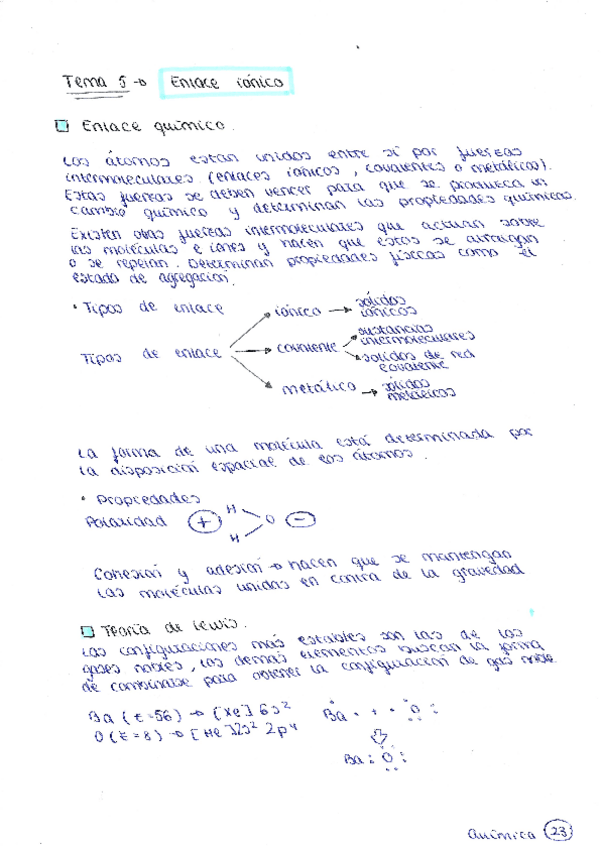 Tema 5 → Enlace iónico
Enlace químico.
Los átomos están unidos entre sí por fuerzas
intermoleculares (enlaces iónicos, covalentes o metálicos).
Estas fuerzas se deben vencer para que se produzca un
cambio químico y determinan las propiedades químicas.
Existen otras fuerzas intermoleculares que actúan sobre
las moléculas e iones y hacen que estos se atraigan
o se repelan. Determinan propiedades físicas como el
estado de agregación.
• Tipos de enlace
Tipos de enlace
iónico → sólidos iónicos
covalente
sustancias intermoleculares
sólidos de red covalente
metálico → sólidos metálicos
La forma de una molécula está determinada por
la disposición espacial de los átomos.
• Propiedades
Polaridad + H O −
H
Cohesión y adhesión → hacen que se mantengan
las moléculas unidas en contra de la gravedad
Teoría de Lewis.
Las configuraciones más estables son las de los
gases nobles, los demás elementos buscan la forma
de combinarse para obtener la configuración de gas noble.
Ba (z=56) → [Xe] 6s² Ba· + ·O:
O (z=8) → [He] 2s² 2p⁴
Ba:O:
Química 23